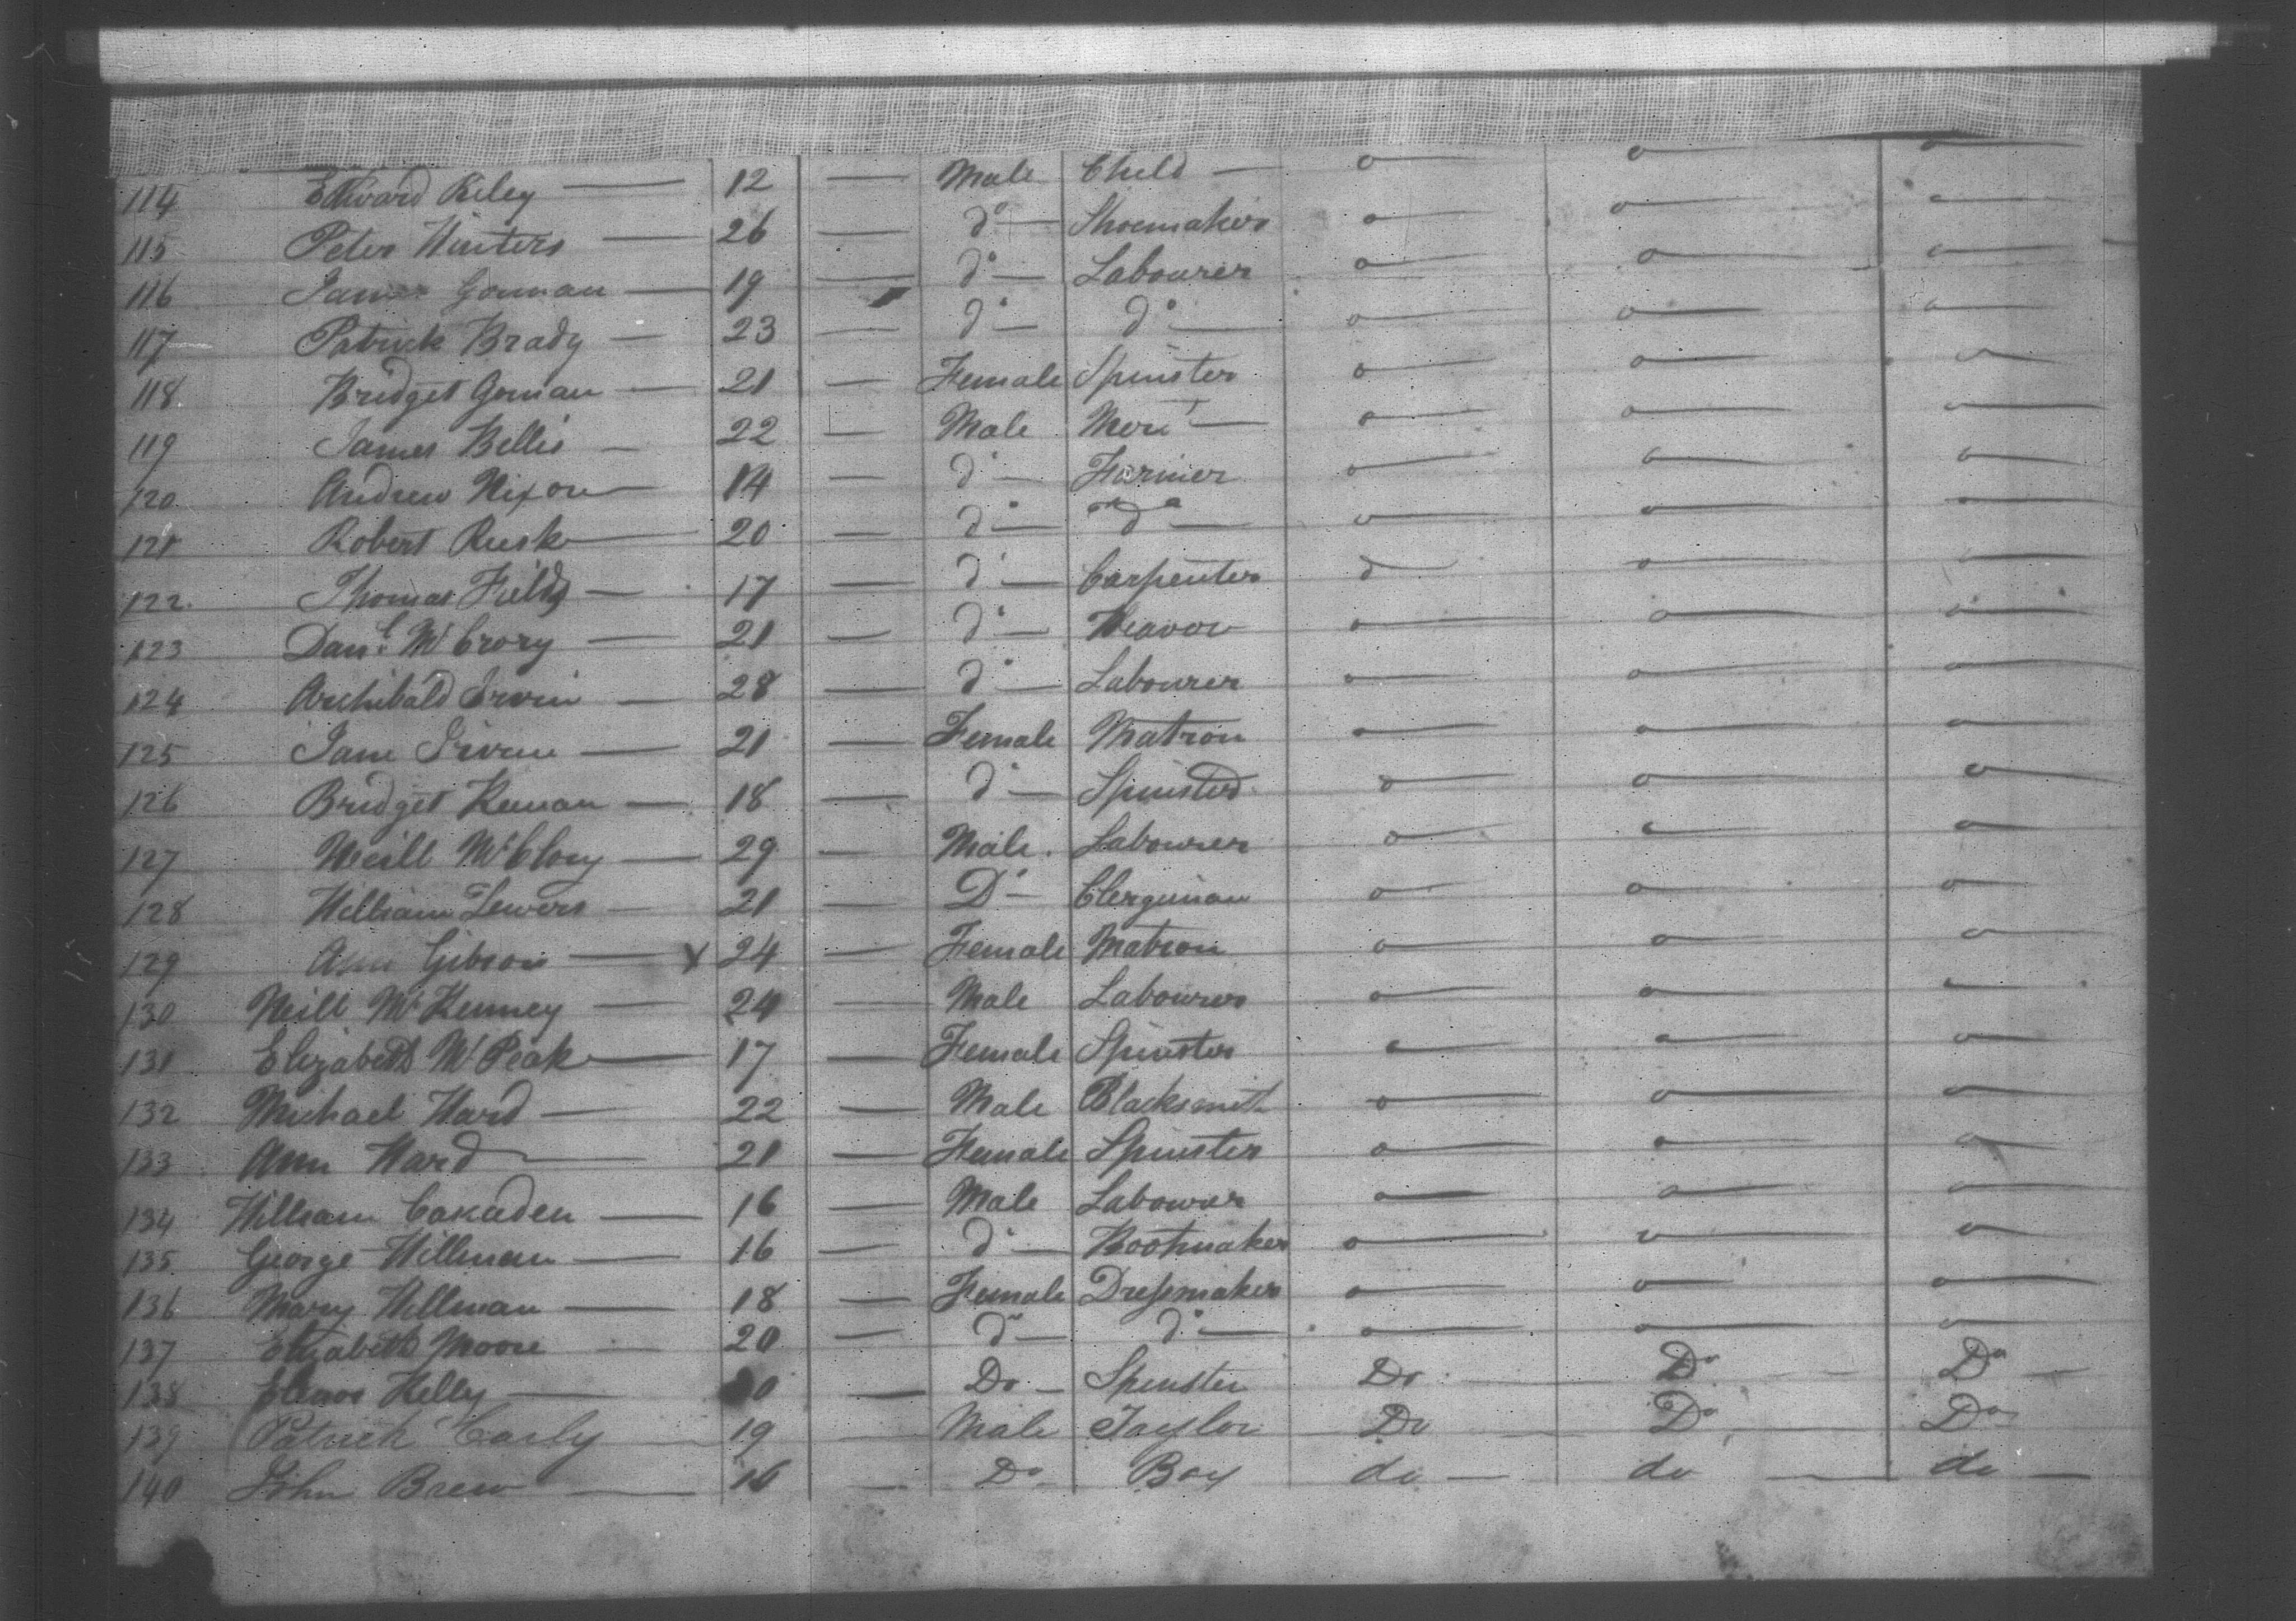 114 Edward Riley — 12 — Male Child —
115 Peter Winters — 26 — do — Shoemaker
116 James Gorman — 19 — do — Labourer
117 Patrick Brady — 23 — do — do —
118 Bridget Gorman — 21 — Female Spinster
119 James Bellis — 22 — Male —
120 Andrew Nixon — 14 — do — Farmer
121 Robert Rusk — 20 — do — do —
122 Thomas Fields — 17 — do — Carpenter
123 Danl. McCrory — 21 — do — Weavor
124 Archibald Irvin — 28 — do — Labourer
125 Jane Irvine — 21 — Female Matron
126 Bridget — 18 — do —
127 Neill — 29 — Male Labourer
128 William — 21 — Do — Clergiman
129 Ann Gibson — x 24 — Female Matron
130 Neill McKenney — 24 — Male Labourer
131 Elizabeth McPeak — 17 — Female Spinster
132 Michael Ward — 22 — Male Blacksmith
133 Ann Ward — 21 — Female Spinster
134 William Cakaden — 16 — Male Labourer
135 George Willman — 16 — do — Bootmaker
136 Mary Willman — 18 — Female Dressmaker
137 Elizabeth Moore 20 — do — do —
138 Elenor Kelly — — Do — Spinster Do Do Do
139 Patrick — 19 Male Taylor Do Do Do
140 John Brew — 16 Do Boy do — do — do —